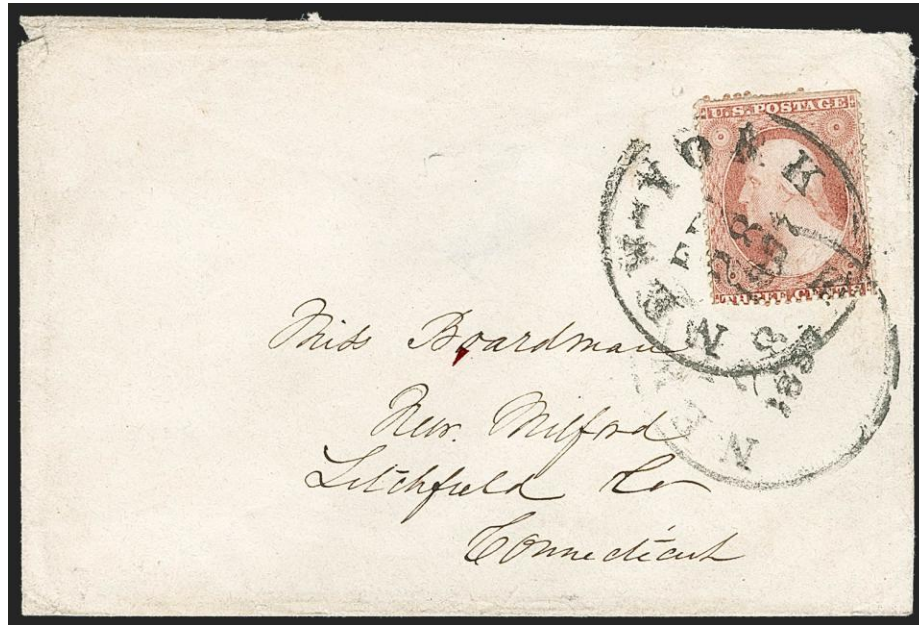 U.S. POSTAGE
THREE CENTS
NEW-YORK
Miss Boardman
New Milford
Litchfield Co
Connecticut